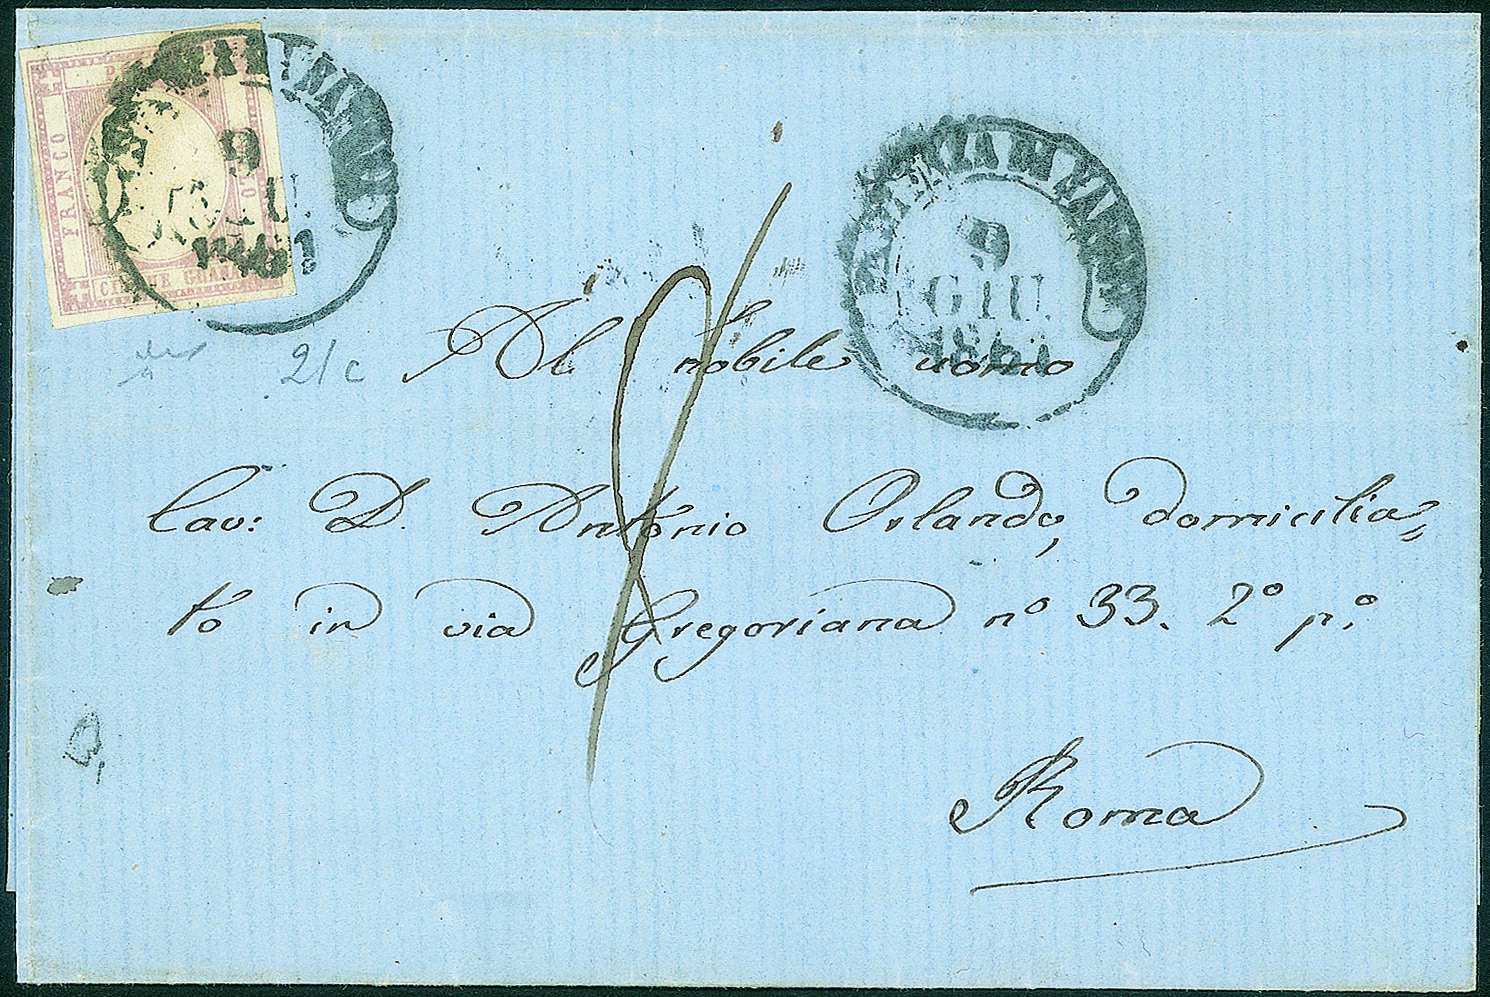 FRANCO
CINQUE GRANA
9
PARTENZA DA NAPOLI
9
GIU.
1861
21c
Al nobile uomo
Cav: D. Antonio Orlando, domicilia=
to in via Gregoriana n° 33. 2° p.°
Roma